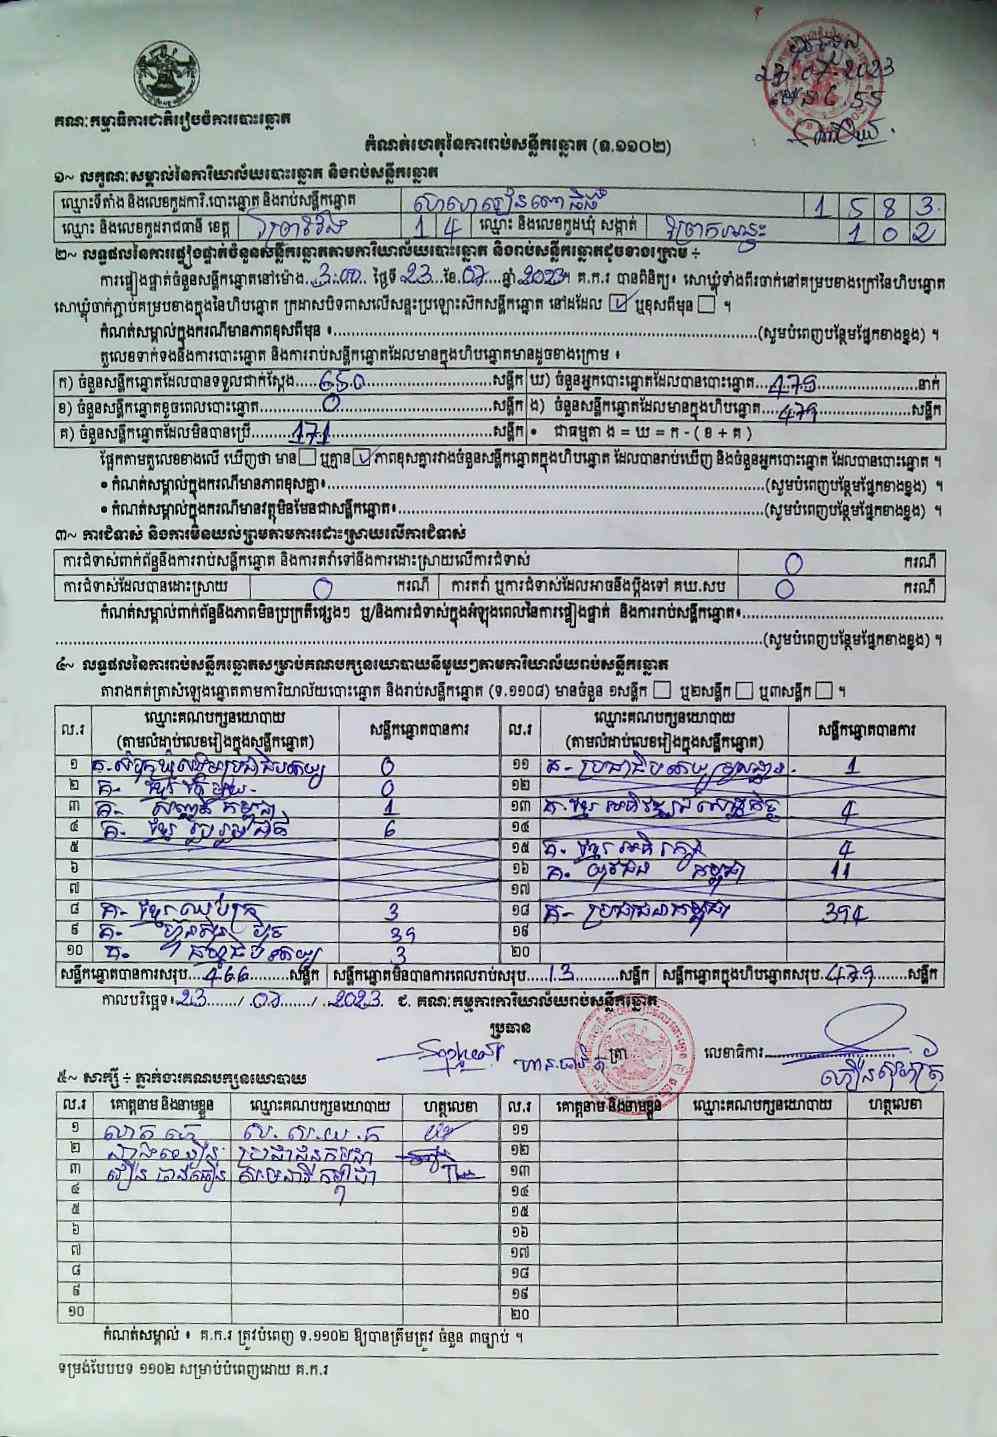 23.07.2023
គណៈកម្មាធិការជាតិរៀបចំការបោះឆ្នោត
កំណត់ហេតុនៃការរាប់សន្លឹកឆ្នោត (ទ.១១០២)
១~ លក្ខណៈសម្គាល់នៃការិយាល័យបោះឆ្នោត និងរាប់សន្លឹកឆ្នោត
ឈ្មោះទីតាំង និងលេខកូដការិ.បោះឆ្នោត និងរាប់សន្លឹកឆ្នោត 1 5 8 3
ឈ្មោះ និងលេខកូដរាជធានី ខេត្ត ព្រៃវែង 1 4 ឈ្មោះ និងលេខកូដឃុំ សង្កាត់ 1 0 2
២~ លទ្ធផលនៃការផ្ទៀងផ្ទាត់ចំនួនសន្លឹកឆ្នោតតាមការិយាល័យបោះឆ្នោត និងរាប់សន្លឹកឆ្នោតដូចខាងក្រោម ÷
ការផ្ទៀងផ្ទាត់ចំនួនសន្លឹកឆ្នោតនៅម៉ោង 3.00 ថ្ងៃទី 23 ខែ 07 ឆ្នាំ 2023។ គ.ក.រ បានពិនិត្យ៖ សោឃ្លុំទាំងពីរចាក់នៅគម្របខាងក្រៅនៃហិបឆ្នោត
សោឃ្លុំចាក់ភ្ជាប់គម្របខាងក្នុងនៃហិបឆ្នោត ក្រដាសបិទពាសលើសន្ទះប្រឡោះសិកសន្លឹកឆ្នោត នៅដដែល ☑ ឬខុសពីមុន ☐ ។
កំណត់សម្គាល់ក្នុងករណីមានភាពខុសពីមុន ៖ (សូមបំពេញបន្ថែមផ្នែកខាងខ្នង) ។
តួលេខទាក់ទងនឹងការបោះឆ្នោត និងការរាប់សន្លឹកឆ្នោតដែលមានក្នុងហិបឆ្នោតមានដូចខាងក្រោម ៖
ក) ចំនួនសន្លឹកឆ្នោតដែលបានទទួលជាក់ស្តែង 650 សន្លឹក ឃ) ចំនួនអ្នកបោះឆ្នោតដែលបានបោះឆ្នោត 479 នាក់
ខ) ចំនួនសន្លឹកឆ្នោតខូចពេលបោះឆ្នោត 0 សន្លឹក ង) ចំនួនសន្លឹកឆ្នោតដែលមានក្នុងហិបឆ្នោត 479 សន្លឹក
គ) ចំនួនសន្លឹកឆ្នោតដែលមិនបានប្រើ 171 សន្លឹក • ជាធម្មតា ង = ឃ = ក - ( ខ + គ )
ផ្អែកតាមតួលេខខាងលើ ឃើញថា មាន ☐ ឬគ្មាន ☑ ភាពខុសគ្នារវាងចំនួនសន្លឹកឆ្នោតក្នុងហិបឆ្នោត ដែលបានរាប់ឃើញ និងចំនួនអ្នកបោះឆ្នោត ដែលបានបោះឆ្នោត ។
• កំណត់សម្គាល់ក្នុងករណីមានភាពខុសគ្នា៖ (សូមបំពេញបន្ថែមផ្នែកខាងខ្នង) ។
• កំណត់សម្គាល់ក្នុងករណីមានវត្ថុមិនមែនជាសន្លឹកឆ្នោត៖ (សូមបំពេញបន្ថែមផ្នែកខាងខ្នង) ។
៣~ ការជំទាស់ និងការមិនយល់ព្រមតាមការដោះស្រាយលើការជំទាស់
ការជំទាស់ពាក់ព័ន្ធនឹងការរាប់សន្លឹកឆ្នោត និងការតវ៉ាទៅនឹងការដោះស្រាយលើការជំទាស់ 0 ករណី
ការជំទាស់ដែលបានដោះស្រាយ 0 ករណី ការតវ៉ា ឬការជំទាស់ដែលអាចនឹងប្តឹងទៅ គឃ.សប 0 ករណី
កំណត់សម្គាល់ពាក់ព័ន្ធនឹងភាពមិនប្រក្រតីផ្សេងៗ ឬ/និងការជំទាស់ក្នុងអំឡុងពេលនៃការផ្ទៀងផ្ទាត់ និងការរាប់សន្លឹកឆ្នោត៖
(សូមបំពេញបន្ថែមផ្នែកខាងខ្នង) ។
៤~ លទ្ធផលនៃការរាប់សន្លឹកឆ្នោតសម្រាប់គណបក្សនយោបាយនីមួយៗតាមការិយាល័យរាប់សន្លឹកឆ្នោត
តារាងកត់ត្រាសំឡេងឆ្នោតតាមការិយាល័យបោះឆ្នោត និងរាប់សន្លឹកឆ្នោត (ទ.១១០៨) មានចំនួន ១សន្លឹក ☐ ឬ២សន្លឹក ☐ ឬ៣សន្លឹក ☐ ។
ល.រ ឈ្មោះគណបក្សនយោបាយ (តាមលំដាប់លេខរៀងក្នុងសន្លឹកឆ្នោត) សន្លឹកឆ្នោតបានការ ល.រ ឈ្មោះគណបក្សនយោបាយ (តាមលំដាប់លេខរៀងក្នុងសន្លឹកឆ្នោត) សន្លឹកឆ្នោតបានការ
១ 0 ១១ 1
២ 0 ១២
៣ 1 ១៣ 4
៤ 6 ១៤
៥ ១៥ 4
៦ ១៦ គ. យុវជន កម្ពុជា 11
៧ ១៧
៨ គ. ខ្មែរឈប់ក្រ 3 ១៨ គ. ប្រជាជនកម្ពុជា 394
៩ គ. ហ៊្វុនស៊ិនប៉ិច 39 ១៩
១០ 3 ២០
សន្លឹកឆ្នោតបានការសរុប 466 សន្លឹក សន្លឹកឆ្នោតមិនបានការពេលរាប់សរុប 13 សន្លឹក សន្លឹកឆ្នោតក្នុងហិបឆ្នោតសរុប 479 សន្លឹក
កាលបរិច្ឆេទ៖ 23 / 07 / 2023 ជ. គណៈកម្មការការិយាល័យរាប់សន្លឹកឆ្នោត
ប្រធាន
ត្រា លេខាធិការ
៥~ សាក្សី ÷ ភ្នាក់ងារគណបក្សនយោបាយ
ល.រ គោត្តនាម និងនាមខ្លួន ឈ្មោះគណបក្សនយោបាយ ហត្ថលេខា ល.រ គោត្តនាម និងនាមខ្លួន ឈ្មោះគណបក្សនយោបាយ ហត្ថលេខា
១ ១១
២ ប្រជាជនកម្ពុជា ១២
៣ ១៣
៤ ១៤
៥ ១៥
៦ ១៦
៧ ១៧
៨ ១៨
៩ ១៩
១០ ២០
កំណត់សម្គាល់ ៖ គ.ក.រ ត្រូវបំពេញ ទ.១១០២ ឱ្យបានត្រឹមត្រូវ ចំនួន ៣ច្បាប់ ។
ទម្រង់បែបបទ ១១០២ សម្រាប់បំពេញដោយ គ.ក.រ